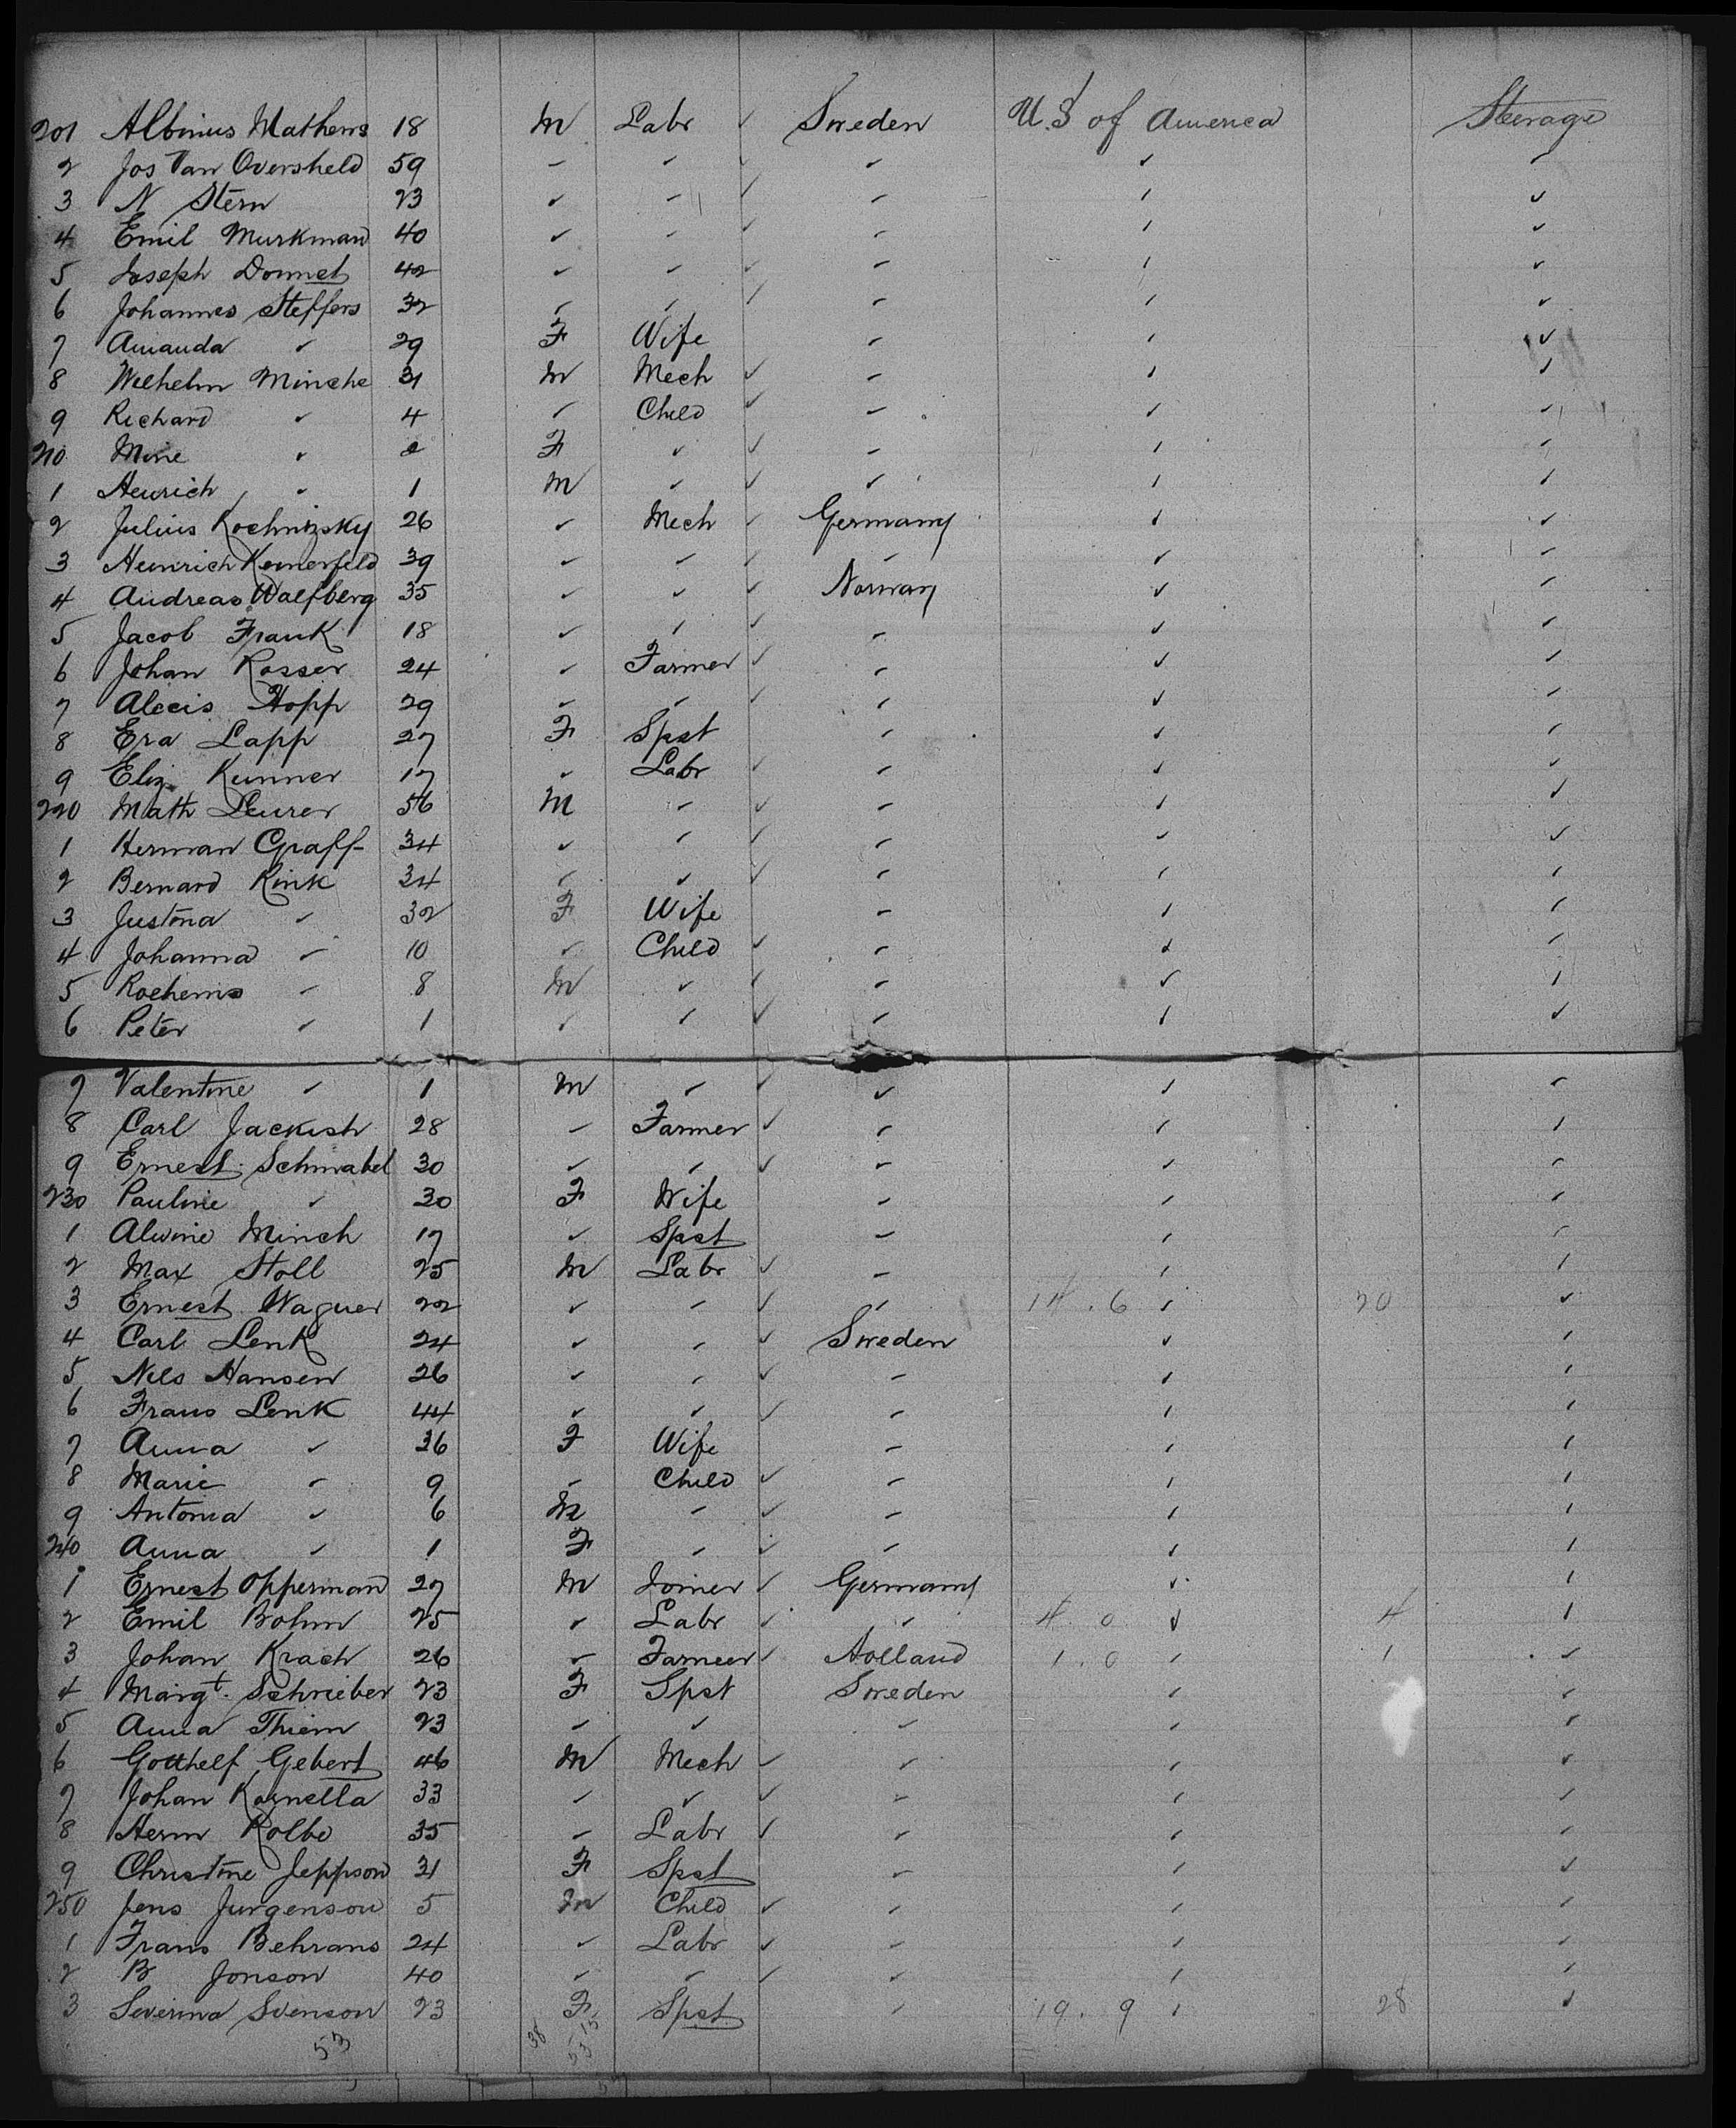 201 Albinus Mathews 18 M Labr ✓ Sweden U.S of America Steerage
2 Jos Van Oversheld 59 " " ✓ " " "
3 N Stern 23 " " ✓ " " "
4 Emil Murkman 40 " " ✓ " " "
5 Joseph Donnet 42 " " ✓ " " "
6 Johannes Steffers 32 " " ✓ " " "
7 Amanda " 29 F Wife " " "
8 Wilhelm Minche 31 M Mech ✓ " " "
9 Richard " 4 " Child ✓ " " "
210 Mine " 2 F " ✓ " " "
1 Heurich " 1 M " ✓ " " "
2 Julius Kochnizsky 26 " Mech ✓ Germany " "
3 Heinrich Kemerfeld 39 " " ✓ " " "
4 Andreas Walfberg 35 " " ✓ Norway " "
5 Jacob Frank 18 " " ✓ " " "
6 Johan Rosser 24 " Farmer ✓ " " "
7 Alecis Hopp 29 " " ✓ " " "
8 Eva Lapp 27 F Spst " " "
9 Eliz. Kunner 17 " Labr ✓ " " "
220 Math Leurer 56 M " ✓ " " "
1 Herman Graff 34 " " ✓ " " "
2 Bernard Rink 34 " " ✓ " " "
3 Justina " 32 F Wife " " "
4 Johanna " 10 " Child ✓ " " "
5 " 8 M " ✓ " " "
6 Peter " 1 " " ✓ " " "
7 Valentine " 1 M " ✓ " " "
8 Carl Jackish 28 " Farmer ✓ " " "
9 Ernest Schwabel 30 " " ✓ " " "
230 Pauline " 30 F Wife " " "
1 Alwine Minch 17 " Spst " " "
2 Max Stoll 25 M Labr ✓ " " "
3 Ernest Wagner 22 " " ✓ " 14.6 " 20 "
4 Carl Lenk 24 " " ✓ Sweden " "
5 Nils Hansen 26 " " ✓ " " "
6 Frans Lenk 44 " " ✓ " " "
7 Anna " 36 F Wife " " "
8 Marie " 9 " Child ✓ " " "
9 Antonia " 6 M " ✓ " " "
240 Anna " 1 F " ✓ " " "
1 Ernest Opperman 27 M Joiner ✓ Germany " "
2 Emil Bohm 25 " Labr ✓ " 4.0 " 4 "
3 Johan Krach 26 " Farmer ✓ Holland 1.0 " 1 "
4 Margt. Schrieber 23 F Spst Sweden " "
5 Anna Thiem 23 " " " " "
6 Gotthelf Gebert 46 M Mech ✓ " " "
7 Johan Karnella 33 " " ✓ " " "
8 Herm Kolbe 35 " Labr ✓ " " "
9 Christine Jeppson 31 F Spst " " "
250 Jens Jurgenson 5 M Child ✓ " " "
1 Frans Behrans 24 " Labr ✓ " " "
2 B Jonson 40 " " ✓ " " "
3 Severina Svenson 23 F Spst " 19.9 " 28 "
53 38 15
53